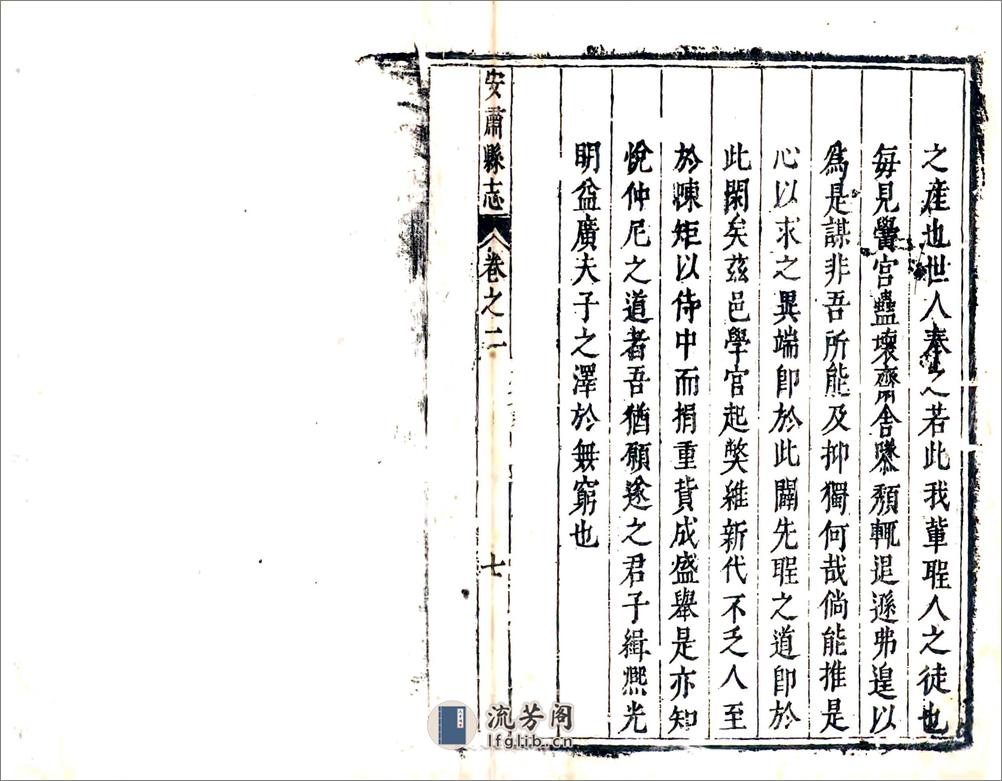 之產也世人奉之若此我軰聖人之徒也
每見黌宮蠱壞齋舍隳頹輒退遜弗遑以
爲是謀非吾所能及抑獨何哉倘能推是
心以求之異端卽於此闢先聖之道卽於
此閑矣茲邑學官起獘維新代不乏人至
於涷矩以侍中而捐重貲成盛舉是亦知
悅仲尼之道者吾猶願遂之君子緝熈光
明益廣夫子之澤於無窮也
安肅縣志 卷之二 七
流芳阁
lfglib.cn